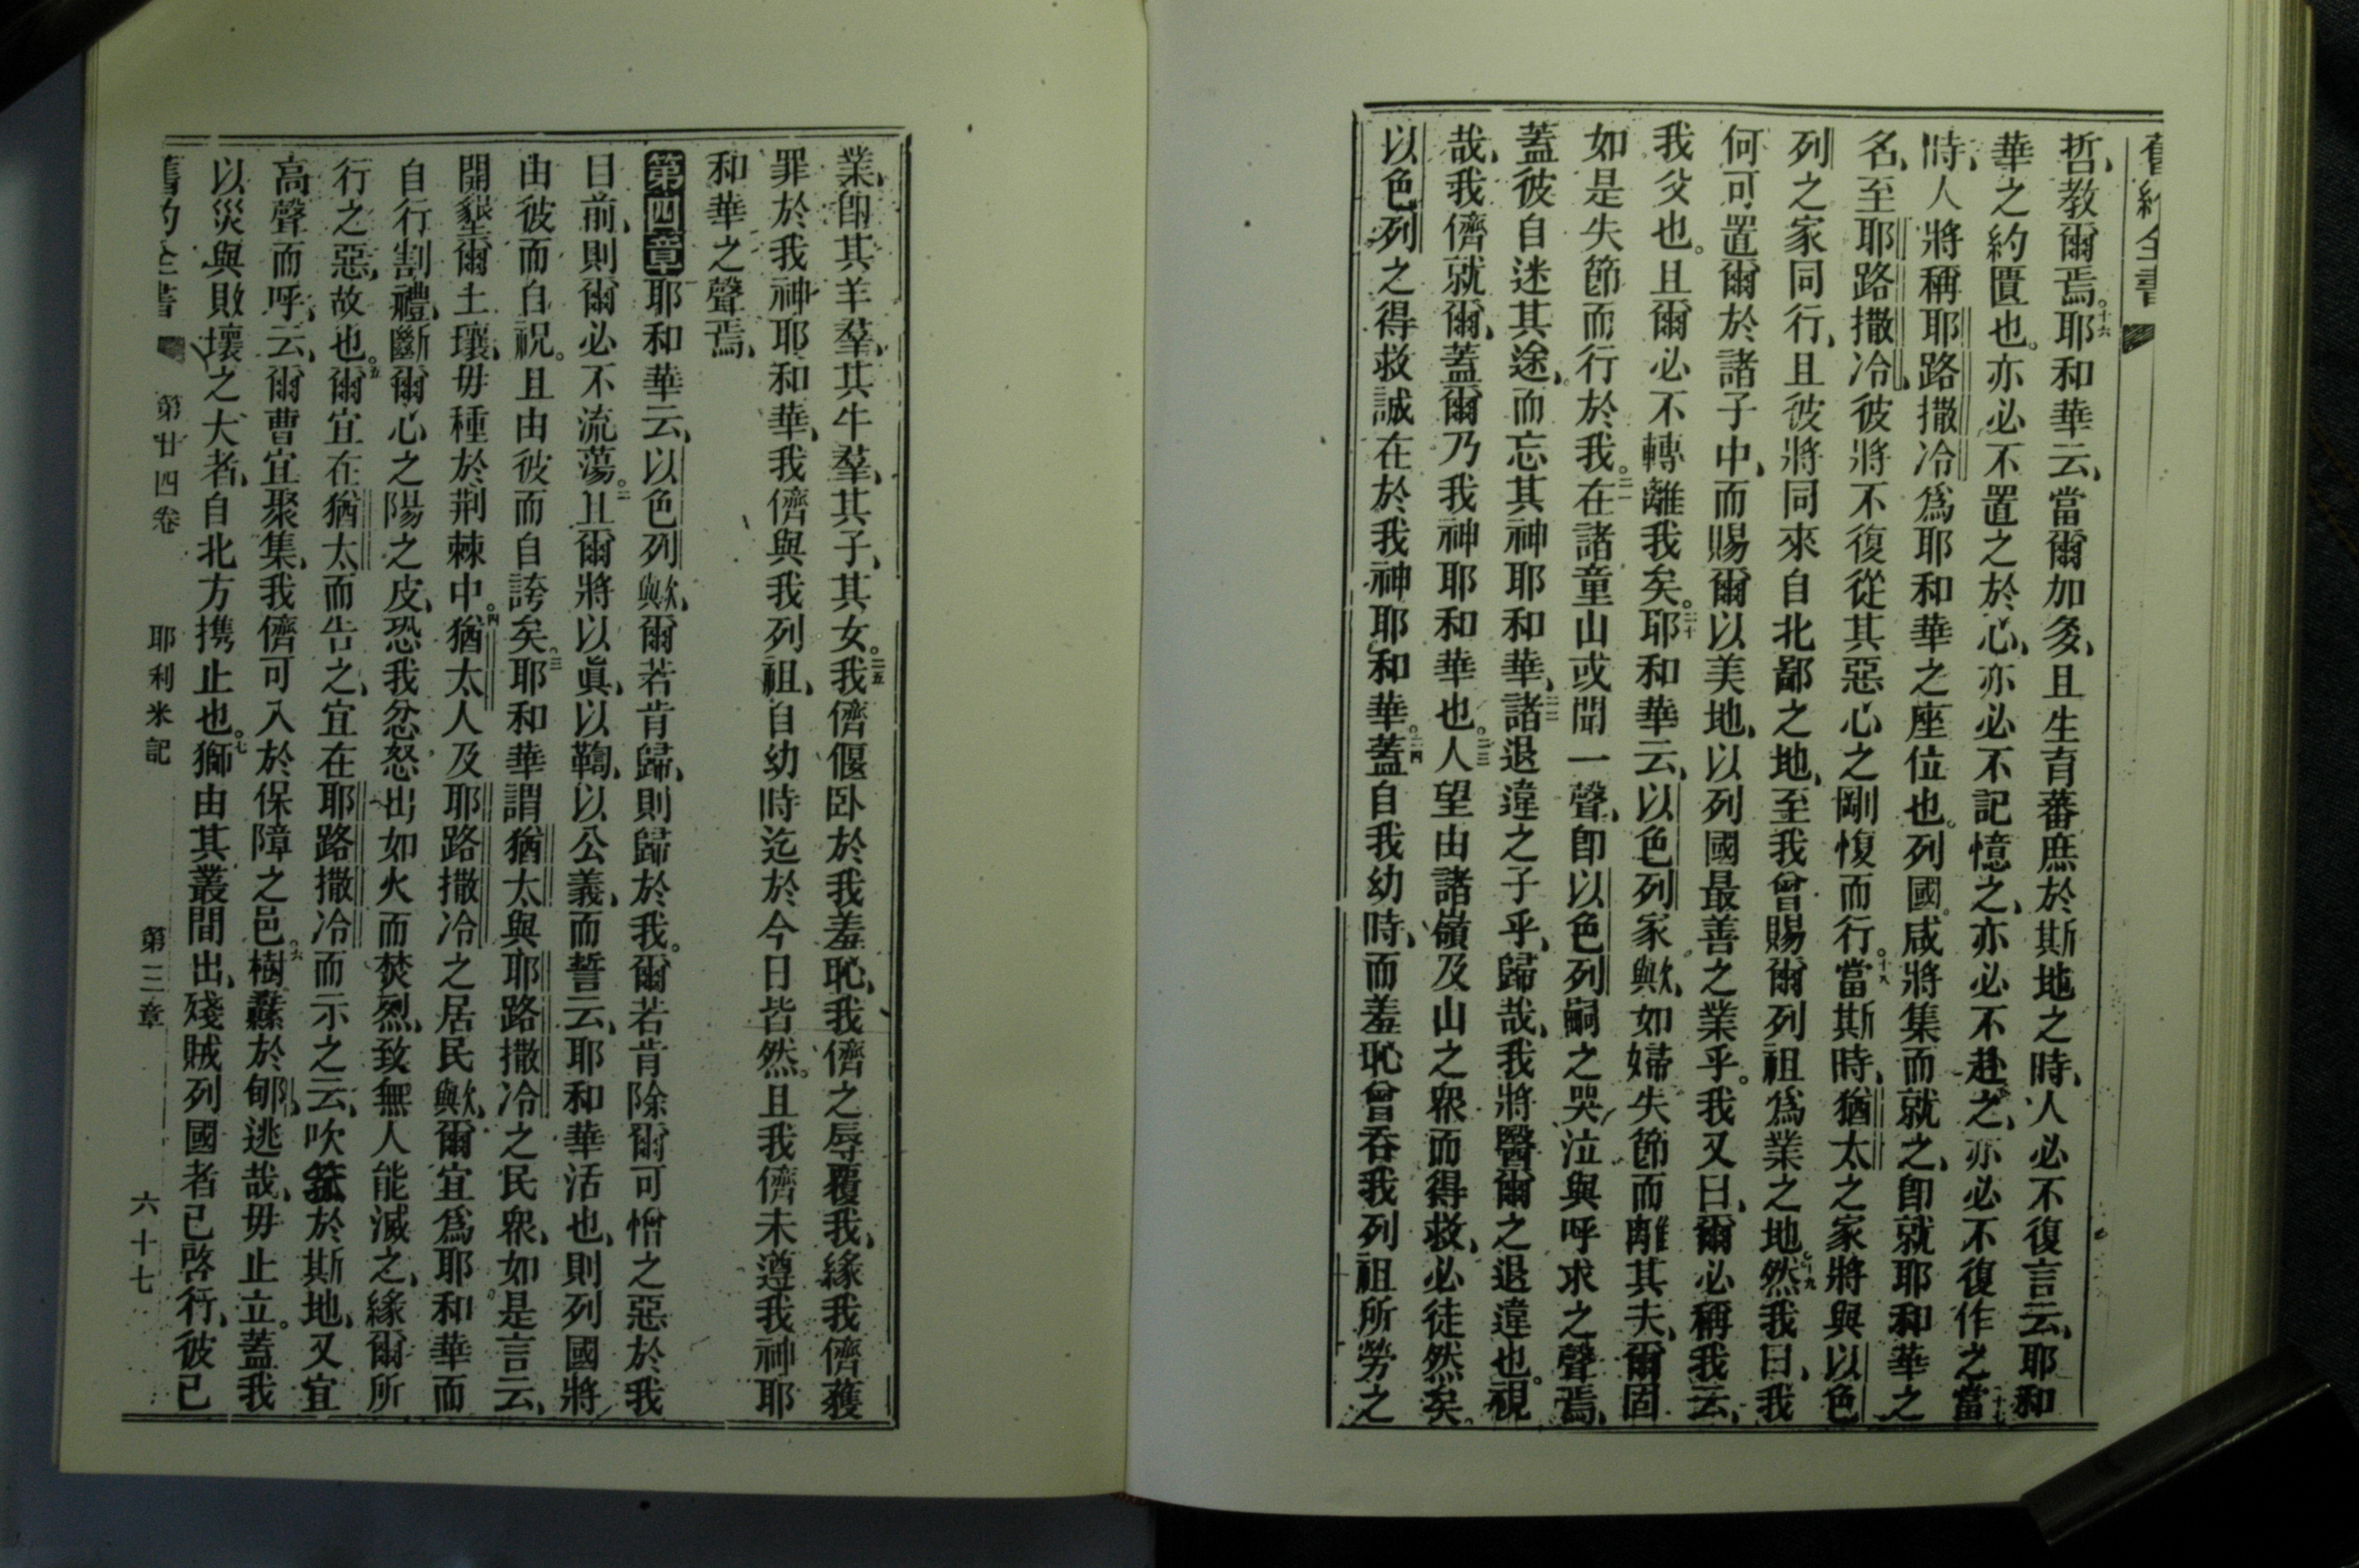 舊約全書
哲、教爾焉。十六耶和華云、當爾加多、且生育蕃庶於斯地之時、人必不復言云、耶和
華之約匱也。亦必不置之於心、亦必不記憶之、亦必不赴之、亦必不復作之。十七當
時、人將稱耶路撒冷爲耶和華之座位也。列國咸將集而就之、卽就耶和華之
名、至耶路撒冷、彼將不復從其惡心之剛愎而行。十八當斯時、猶太之家將與以色
列之家同行、且彼將同來自北鄙之地、至我曾賜爾列祖爲業之地。十九然我曰、我
何可置爾於諸子中、而賜爾以美地、以列國最善之業乎。我又曰、爾必稱我云、
我父也。且爾必不轉離我矣。二十耶和華云、以色列家歟、如婦失節而離其夫、爾固
如是失節而行於我。二一在諸童山或聞一聲、卽以色列嗣之哭泣與呼求之聲焉、
蓋彼自迷其途、而忘其神耶和華、二二諸退違之子乎、歸哉、我將醫爾之退違也。視
哉、我儕就爾、蓋爾乃我神耶和華也。二三人望由諸嶺及山之眾而得救、必徒然矣。
以色列之得救誠在於我神耶和華。二四蓋自我幼時、而羞恥曾吞我列祖所勞之
業、卽其羊羣、其牛羣、其子、其女。二五我儕偃卧於我羞恥、我儕之辱覆我、緣我儕獲
罪於我神耶和華、我儕與我列祖、自幼時迄於今日皆然。且我儕未遵我神耶
和華之聲焉、
第四章耶和華云、以色列歟、爾若肯歸、則歸於我。爾若肯除爾可憎之惡於我
目前、則爾必不流蕩。二且爾將以眞、以鞫、以公義、而誓云、耶和華活也、則列國將
由彼而自祝。且由彼而自誇矣。三耶和華謂猶太與耶路撒冷之民眾、如是言云、
開墾爾土壤、毋種於荆棘中。四猶太人及耶路撒冷之居民歟、爾宜爲耶和華而
自行割禮、斷爾心之陽之皮、恐我忿怒出如火而焚烈、致無人能滅之、緣爾所
行之惡、故也。五爾宜在猶太而告之、宜在耶路撒冷而示之云、吹於斯地、又宜
高聲而呼、云、爾曹宜聚集、我儕可入於保障之邑。六樹纛於郇、逃哉、毋止立。蓋我
以災與敗壞之大者、自北方携止也。七獅由其叢間出、殘賊列國者已啓行、彼已
舊約全書　第廿四卷　耶利米記　第三章　六十七